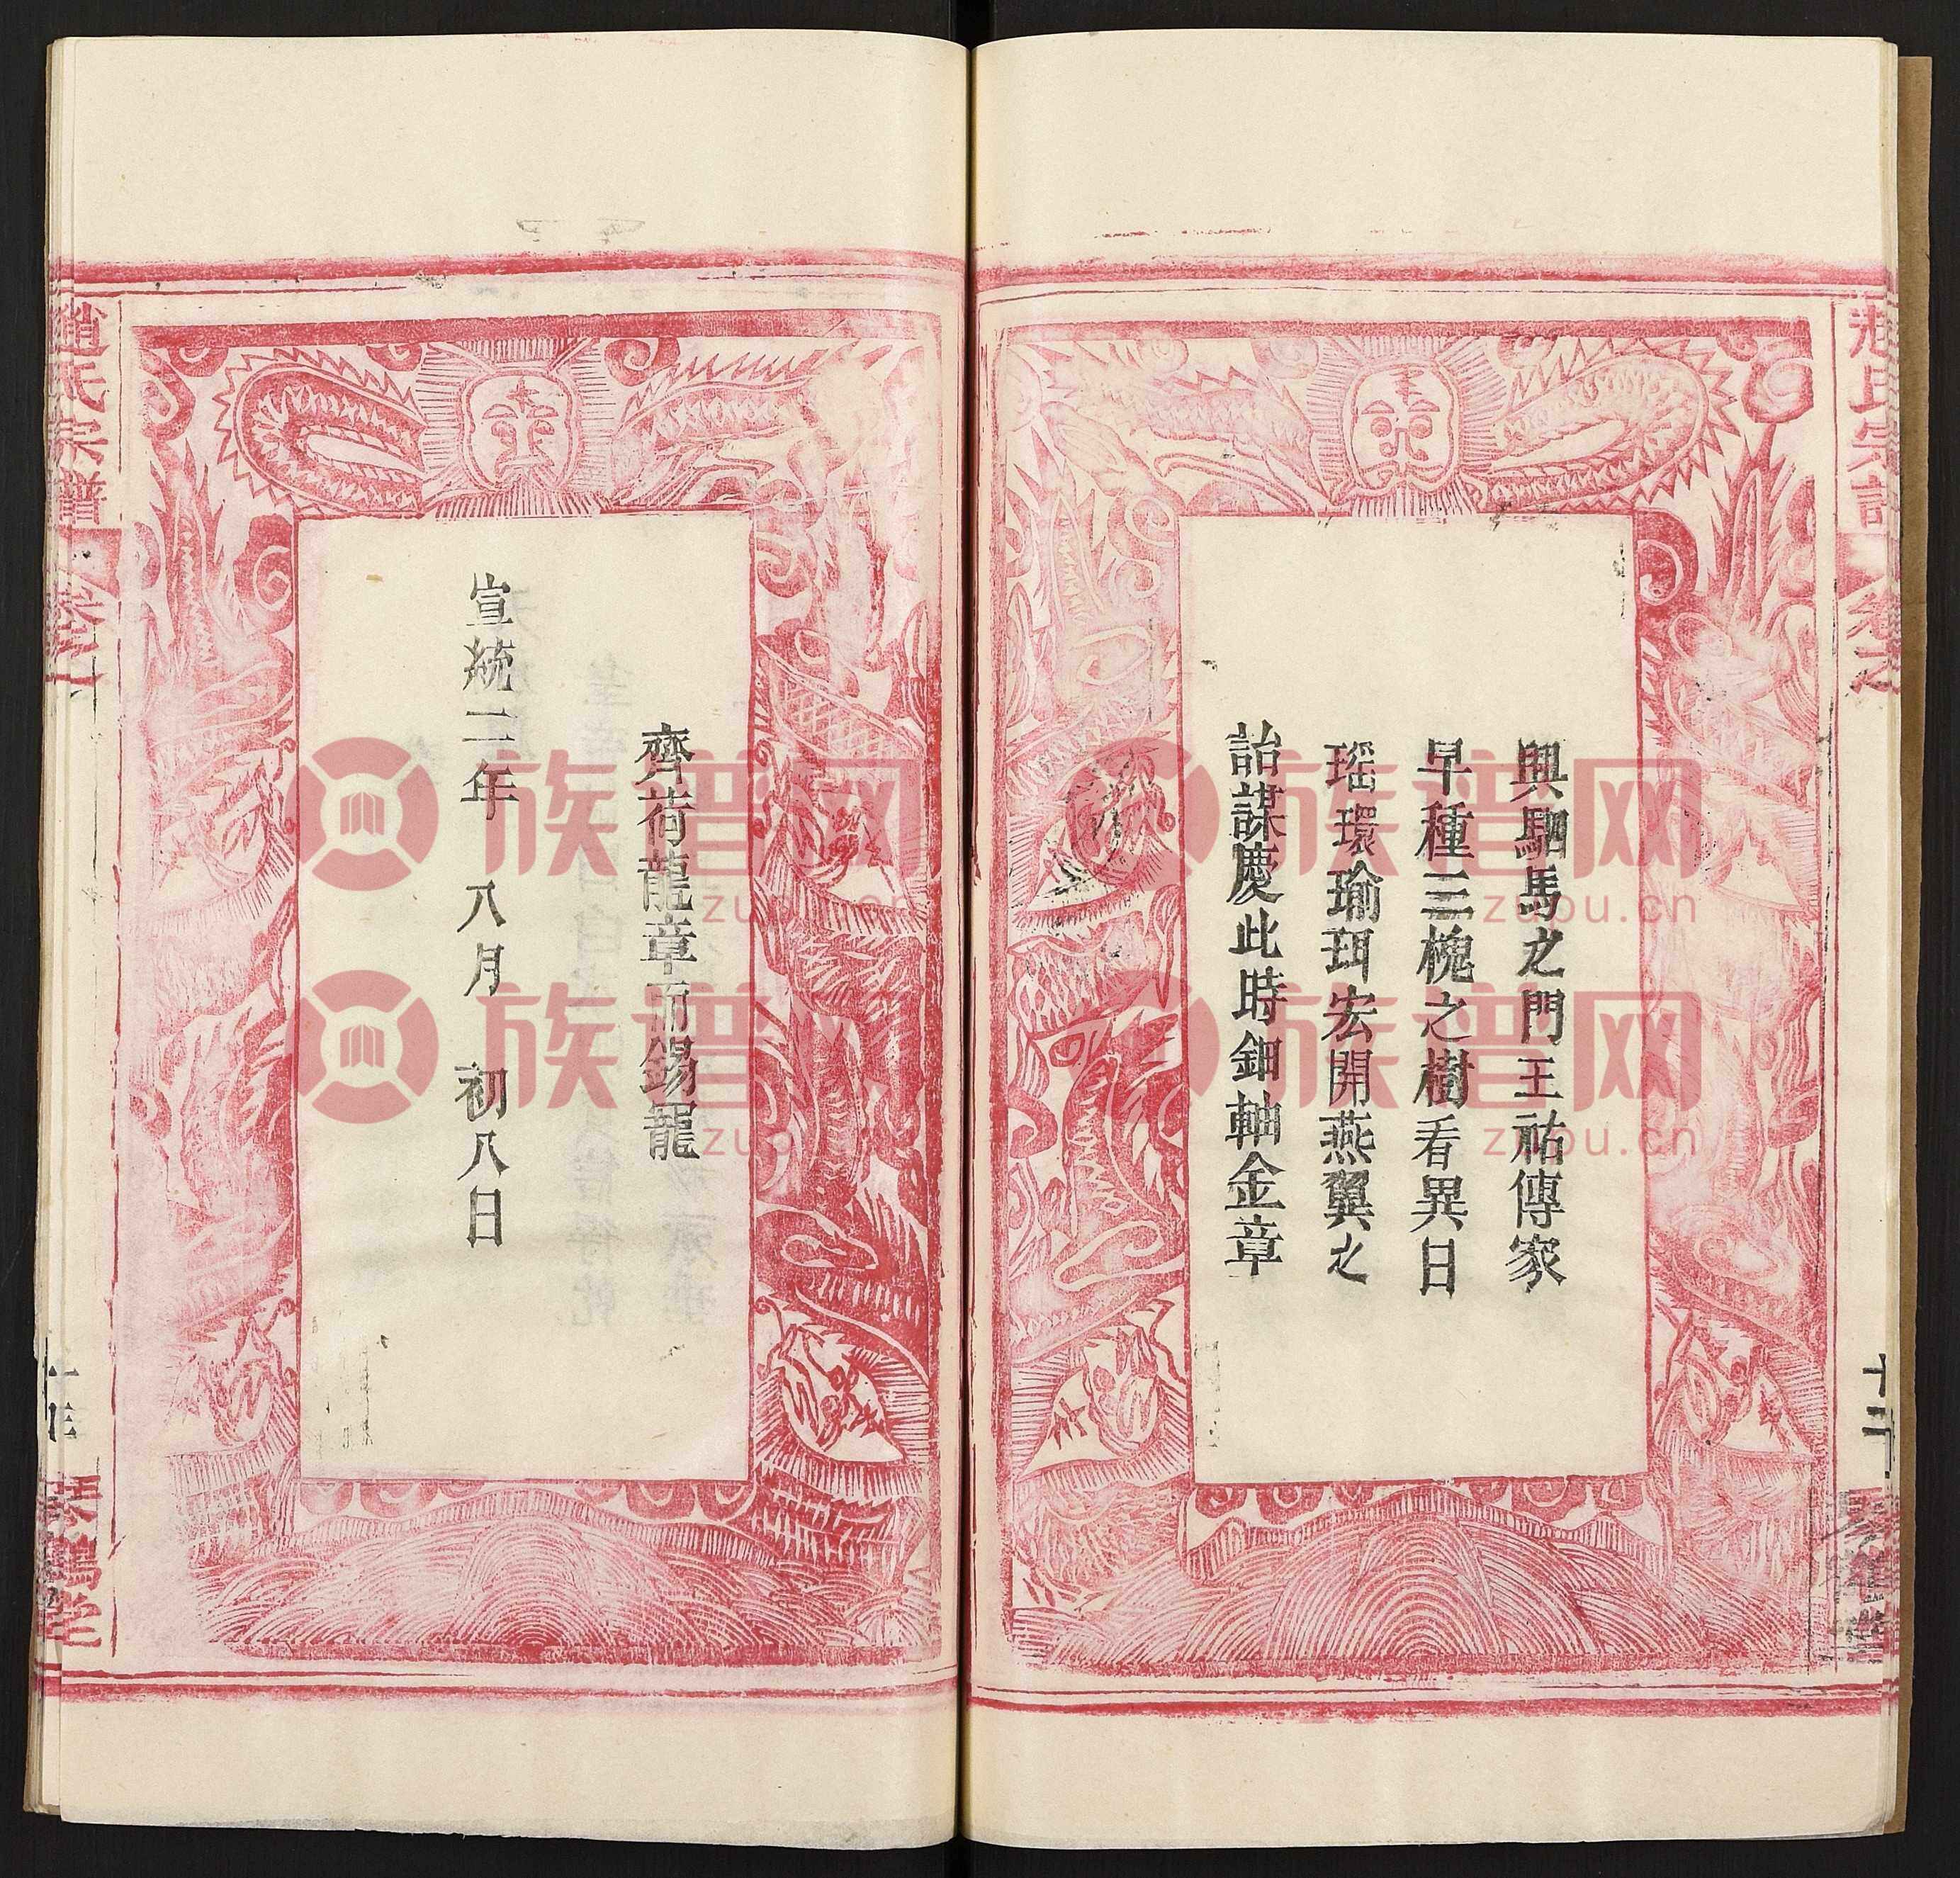 趙氏宗譜
卷之
十二
興駟馬之門王祐傳家
早種三槐之樹看異日
瑶環瑜珥宏開燕翼之
詒謀慶此時鈿軸金章
齊荷龍章而錫寵
宣統二年 八月 初八日
趙氏宗譜
卷之一
琴鶴堂
族谱网
zupu.cn
族谱网
zupu.cn
族谱网
zupu.cn
族谱网
zupu.cn